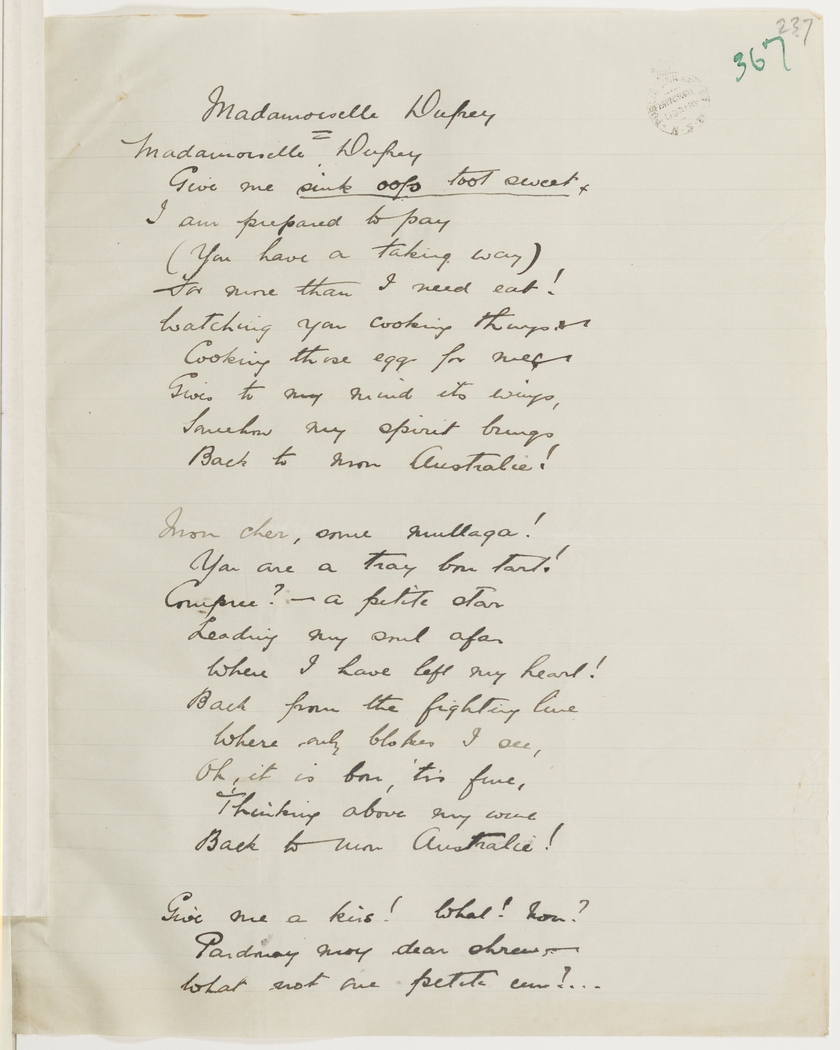 237
367
Madamoiselle Dufrey
Madamoiselle Dufrey
Give me sink oofs toot sweet
I am prepared to pay
(You have a taking way)
For more than I need eat!
Watching you cooking things
Cooking those egg for me
Gives to my mind its wings,
Somehow my spirit brings
Back to mon Australie!
Mon cher, some mullaga!
You are a tray bon tart!
Compree? — a petite star
Leading my soul afar
Where I have left my heart!
Back from the fighting line
Where only blokes I see,
Oh, it is bon, 'tis fine,
Thinking above my wine
Back to mon Australie!
Give me a kiss! What! Non?
Pardnay moy dear shrew—
What not one petite un?...